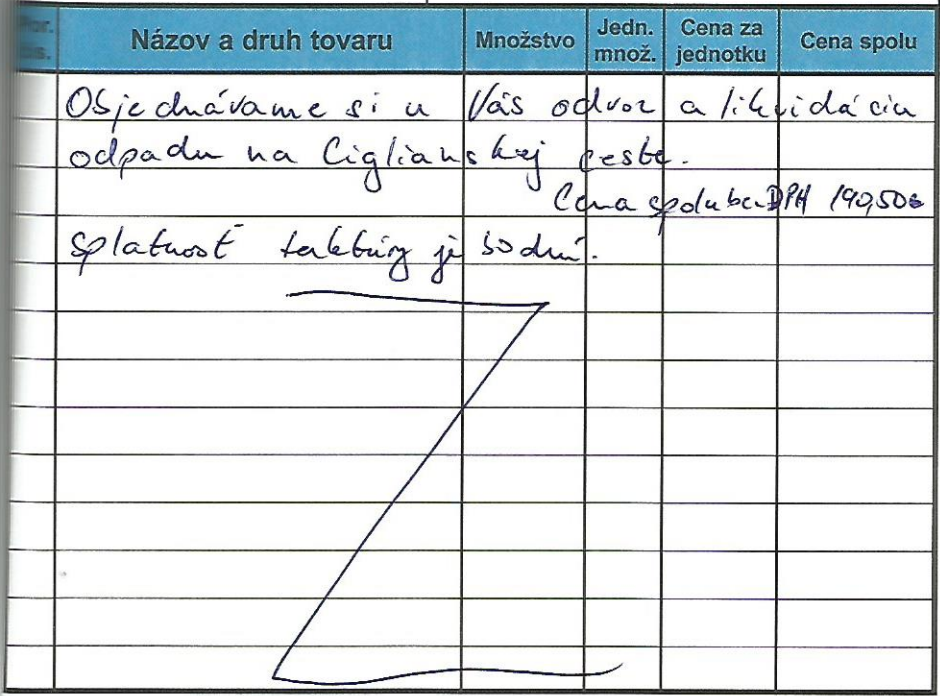 Por. Názov a druh tovaru Množstvo Jedn. Cena za Cena spolu
čís. množ. jednotku
Objednávame si u Vás odvoz a likvidáciu
odpadu na Ciglianskej ceste.
Cena spolu bez DPH 190,50€
Splatnosť faktúry je 30 dní.